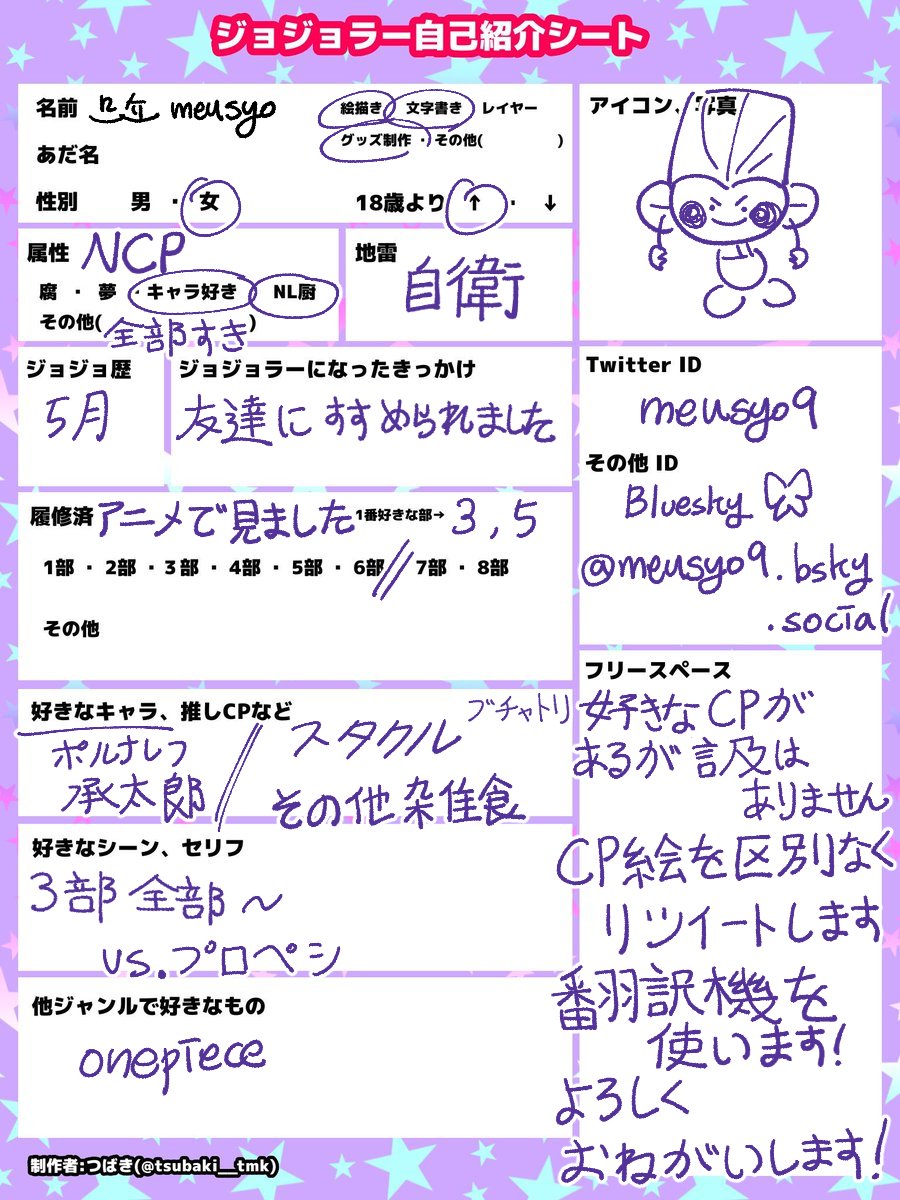 ジョジョラー自己紹介シート
名前 meusyo
絵描き 文字書き レイヤー
グッズ制作・その他( )
あだ名
性別 男・女
18歳より ↑・↓
アイコン、写真
属性 NCP
腐・夢・キャラ好き NL厨
その他(全部すき)
地雷
自衛
ジョジョ歴
5月
ジョジョラーになったきっかけ
友達にすすめられました
Twitter ID
meusyo9
その他 ID
Bluesky
@meusyo9.bsky
.social
履修済 アニメで見ました 1番好きな部→ 3,5
1部・2部・3部・4部・5部・6部 // 7部・8部
その他
好きなキャラ、推しCPなど
ポルナレフ
承太郎
スタクル ブチャトリ
その他 雑食
好きなシーン、セリフ
3部 全部 ~
vs.プロペシ
他ジャンルで好きなもの
onepiece
フリースペース
好きなCPが
あるが言及は
ありません
CP絵を区別なく
リツイートします
翻訳機を
使います!
よろしく
おねがいします!
制作者:つばき(@tsubaki__tmk)